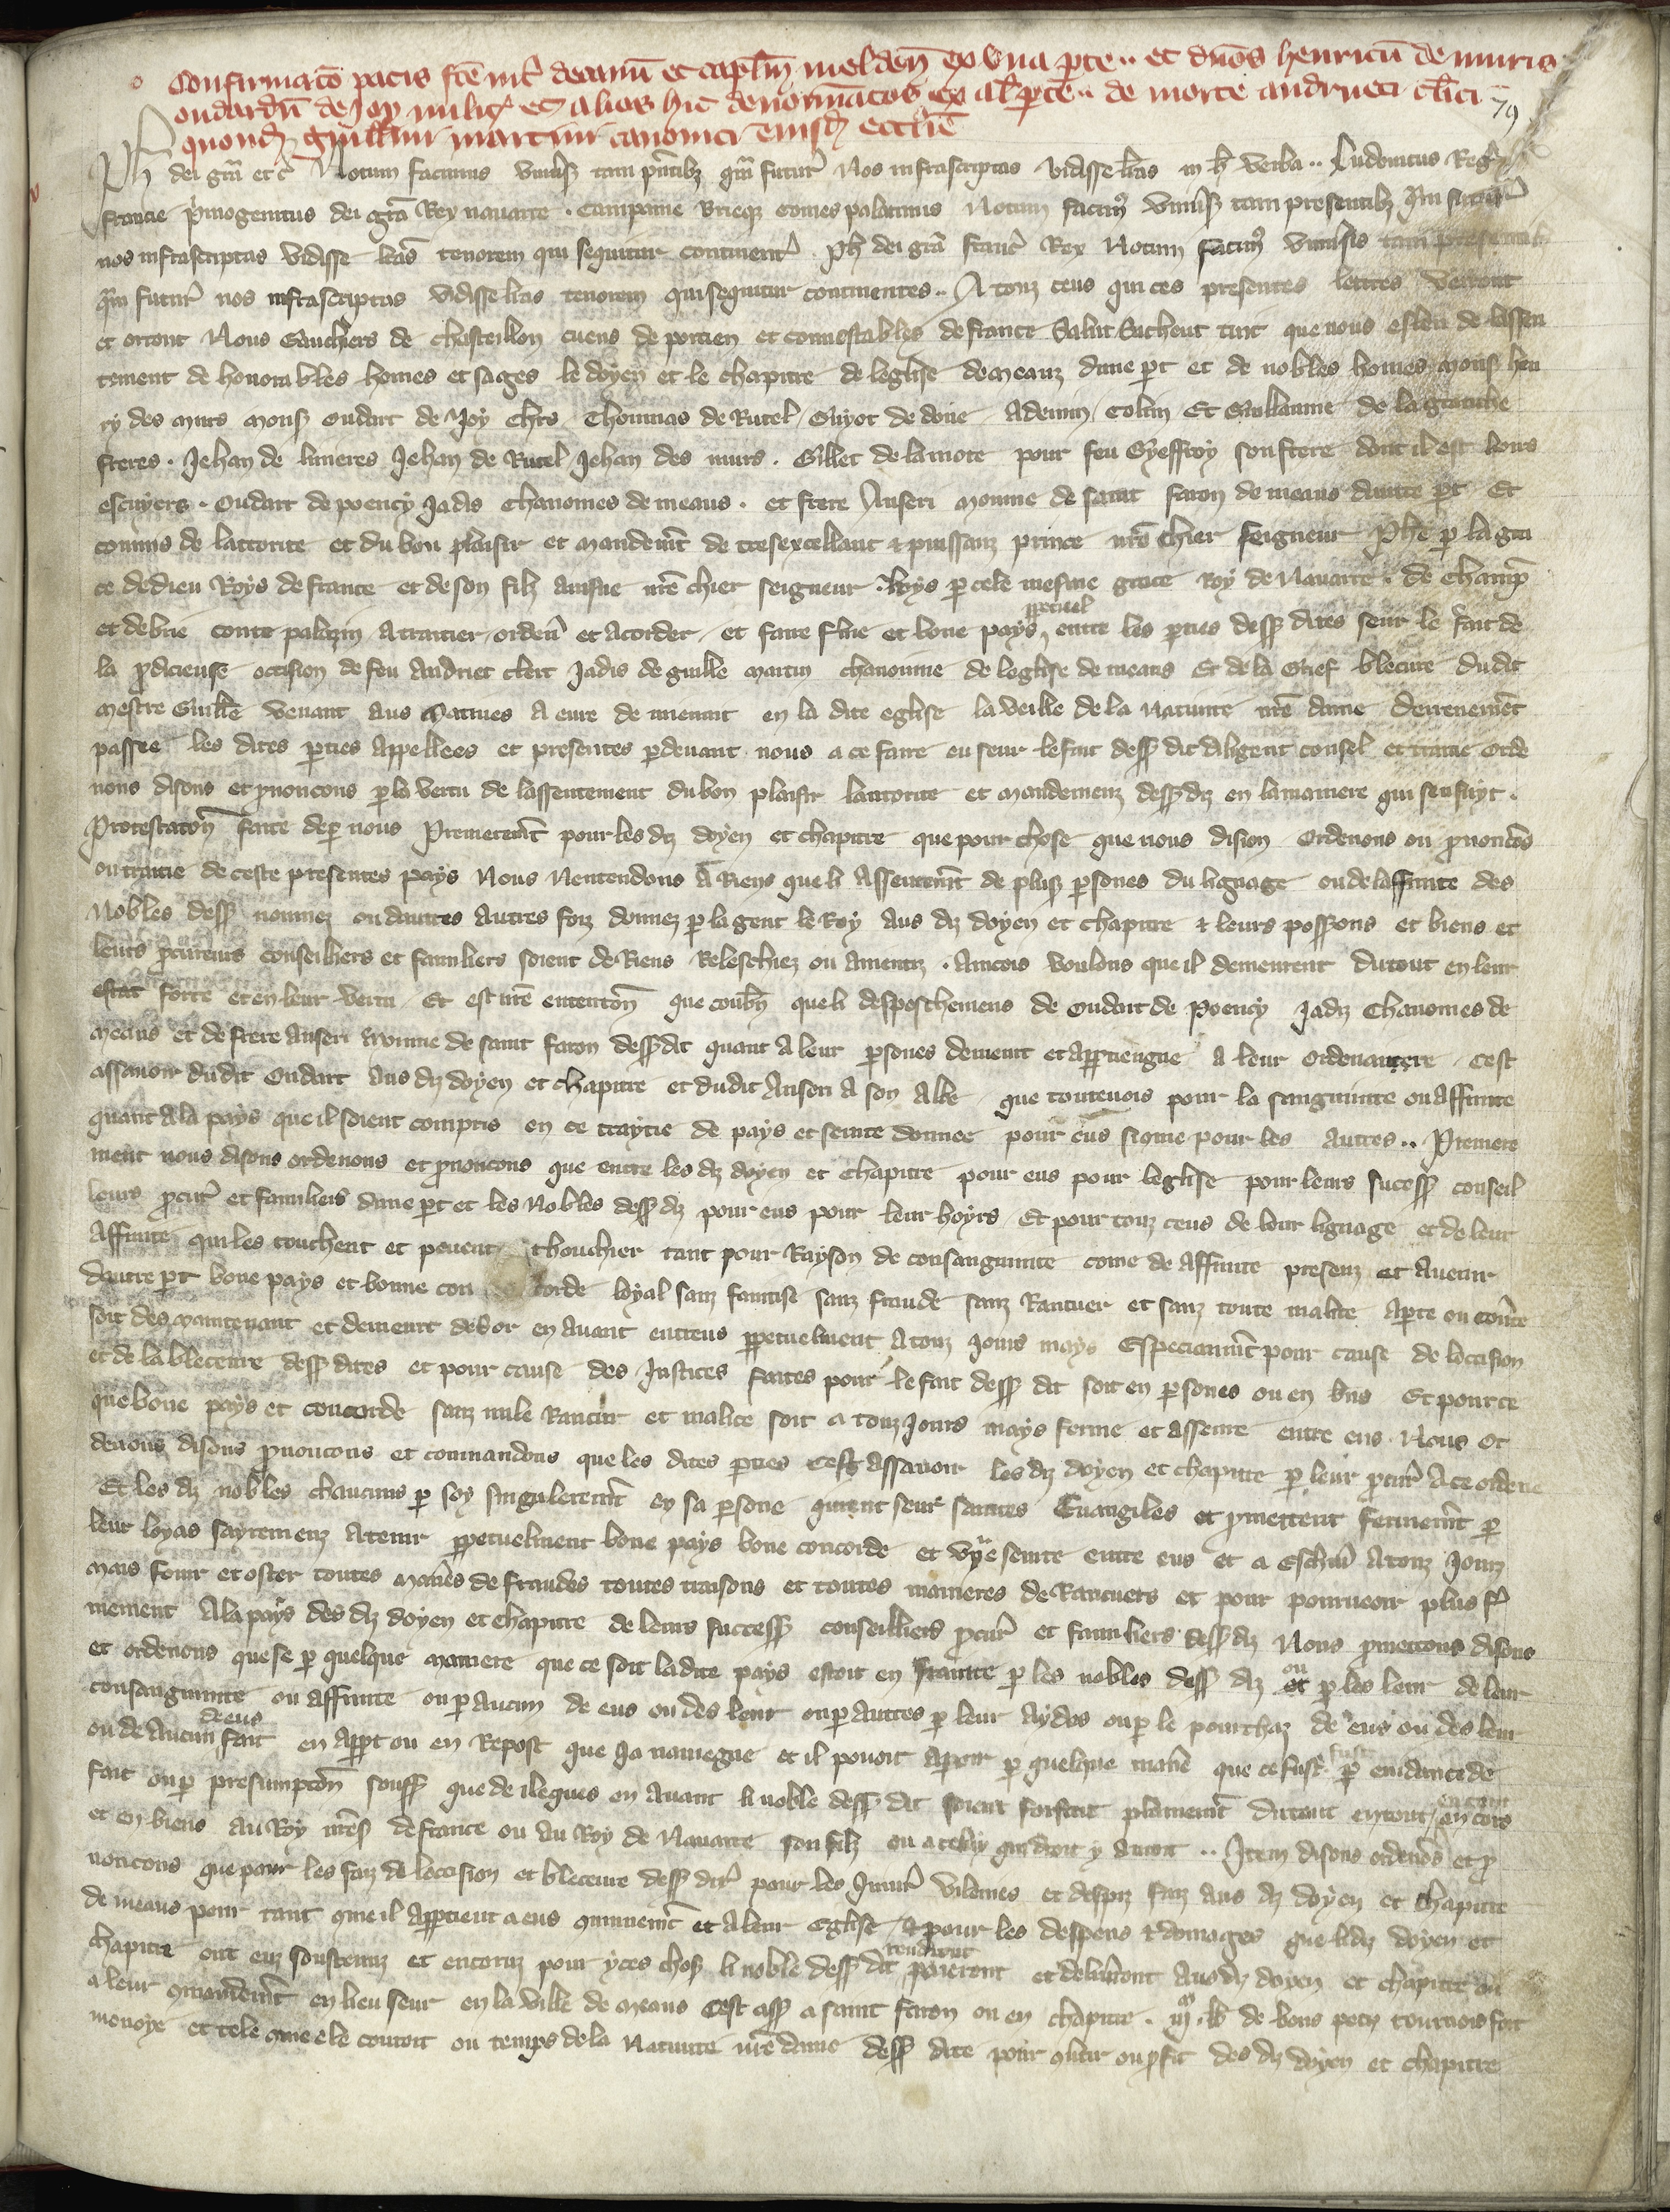 Confirmatō pacis fcē int͛ decanū et capl̄m melden̄ ex una ꝑte .. et dn̄os henricū de muris
oudardū de Joy milit͛ et alios hic denoīatos ex al̄ ꝑte .. de morte andrueti cl̄ici
79
quond̄ guill̄mi martini canonici eiusd̄ ecc̄lie
Ph̄ dei gr̄a et c̄ Notum facimus uniu͛s̄ tam p̄ntibꝫ qm̄ futur͛ Nos infrascriptas vidisse l̄ras in h̄ verba .. Ludovicus Reg͛
francie p̄mogenitus dei gr̄a Rex nauarre . Campanie Brieqꝫ Comes palatinus Notum facimꝰ uniu͛s̄ tam presentibꝫ qm̄ futur͛
nos infrascriptas vidisse l̄ras tenorem qui sequitur continent͛ . Ph̄ dei gr̄a franc͛ Rex Notum facimꝰ uniu͛sis tam presentibꝫ
qm̄ futur͛ nos infrascriptas vidisse l̄ras tenorem qui sequitur continentes .. A touz ceus qui ces presentes lettres verront
et orront Nous Gauchiers de chasteillon cuens de porcien et connestables de france Salut Sachent tuit que nous esleu de lassen
tement de honorables homes et sages le doyen et le chapitre de leglise de meauz dune ꝑt et de nobles homes mons͛ hen
ry des murs mons͛ oudart de Joy ch̄rs Thoumas de Rutel Guyot de doue Adenin Colin Et Guillaume de la granche
freres . Jehan de linieres Jehan de Rutel Jehan des murs . Gillet de lamote pour feu Gyeffroy son frere dont il est hoirs
escuyers . Oudart de poency jadis chanoines de meaus . et frere Anseri moinne de saint faron de meaus dautre ꝑt Et
commis de lattorite et du bon plaisir et mandem̄t de tresexcellant & puissanz prince nr̄e chier seigneur Phē ꝑ la gra
ce de dieu Roys de france et de son filz ainsne nr̄e chier seigneur . loys ꝑ cele mesme grace Roy de Nauarre . de champ̄
et de brie conte palazin a traitier orden͛ et acorder et faire fine et bone pays ꝑpetuel entre les ꝑties dess͛ dites seur le fait de
la ꝓdicieuse occision de feu Andriet clerc jadis de guille͛ martin chanoinne de leglise de meaus Et de la Grief bleceure dudit
mestre Guill̄e venant aus Matines a eure de mienuit en la dite eglise la veille de la Natiuite nr̄e dame derrenem̄t
passee les dites ꝑties appellees et presentes ꝑdeuant nous a ce faire eu seur le fait dess͛ dit diligent consel et traitie orde
nons disons et ꝓnoncons ꝑ la vertu de lassentement du bon plaisir lautorite et mandemenz dess͛ diz en la maniere qui sensuyt .
Protestaton̄ faite de ꝑ nous Premierem̄t pour les diz doyen et chapitre que pour chose que nous dision ordenons ou ꝓnoncōs
ou traitie de ceste presentes pays Nous Nentendons a Riens que li Assentem̄t de plus͛ ꝑsones du lignage ou de laffinite des
Nobles dess͛ nommez ou dautres autres foiz donnez ꝑ la gent le Roy aus diz doyen et chapitre & leurs poss͛ions et biens et
leurs ꝓcureurs conseilliers et familiers soient de Riens Releschiez ou amentiz . Aincois voulons que il demeurent du tout en leur
estat force et en leur vertu Et est nr̄e ententōn que combn̄ que li despeschemens de Oudart de Poency jadis Chanoines de
meaus et de frere anseri moinne de saint faron dess͛ dit quant a leur ꝑsones demeurt et apꝑtiengne a leur ordenancere cest
assauoir dudit Oudart aus diz doyen et chapitre et dudit Anseri a son Albe que toutenois pour la sanguinite ou affinite
quant a la pays que il soient compris en ce traytie de pays et seurte donnee pour eus sicme pour les autres .. Premiere
ment nous disons ordenons et ꝓnoncons que entre les diz doyen et chapitre pour eus pour leglise pour leurs sucess͛ conseil
leurs ꝓcur͛ et familiers dune ꝑt et les Nobles dess͛ diz pour eus pour leur hoyrs Et pour touz ceus de leur lignage et de leur
affinite qui les touchent et peuent thouchier tant pour Rayson de consanguinite come de affinite presenz et auenir
dautre ꝑt bone pays et bonne con corde loyal sanz faintise sanz fraude sanz Rancuer et sanz toute malice aperte ou couu͛te
soit des maintenant et demeurt desor en auant entreus ꝑpetuelment a touz jours mays Especiaum̄t pour cause de loccision
et de la bleceure dess͛ dites et pour cause des Justices faites pour le fait dess͛ dit soit en ꝑsones ou en bn̄s Et pource
que bone pays et concorde sanz nule Rancur et malice soit a touz jours mays ferme et asseure entre eus Nous or
denons disons ꝓnoncons et commandons que les dites ꝑties cest assauoir les diz doyen et chapitre ꝑ leur ꝓcur͛ a ce ordene
Et les diz nobles chaucuns ꝑ soy singulerem̄t en sa ꝑsone jurent seur saintes Euangiles et ꝓmettent fermem̄t ꝑ
leur loyas sayremenz a tenir ꝑpetuelment bone pays bone concorde et vr̄e seurte entre eus et a Eschiu͛ a touz jourz
mais fouir et oster toutes man͛es de fraudes toutes traisons et toutes manieres de Rancuers et pour pourueoir plus f͛
mement a la pays des diz doyen et chapitre de leurs success͛ conseilliers ꝓcur͛ et familiers dess͛ diz Nous ꝓmettons disons
et ordenons que se ꝑ quelque maniere que ce soit ladite pays estoit enfrainte ꝑ les nobles dess͛ diz ou ꝑ les leur de leur
consanguinite ou affinite ou ꝑ aucun de eus ou des leur ou ꝑ autres ꝑ leur aydes ou ꝑ le pourchaz de eus ou des leur
ou de aucun deus fait en appt ou en Repost que ja nauiegne et il pouoit aparoir ꝑ quelque man͛e que ce fust ꝑ euidance de
fait ou ꝑ presumpton̄ souff͛ que de ileques en auant li noble dess͛ dit soient forfait plainem̄t du tout en tout en cors
et en biens au Roy nr̄es͛ de france ou au Roy de Nauarre son filz ou a celuy qui droit y auroit .. Item disons ordenōs et ꝓ
noncons que pour les faiz de loccision et bleceure dess͛ dit͛ pour les Iniur͛ vilenies et despiz faiz aus diz doyen et chapitre
de meaus pour tant cme il appartient a eus cmunem̄t et a leur Eglise & pour les despens & domages que lidiz doyen et
chapitre ont euz soustenuz et encoruz pour yces chos͛ li noble dess͛ dit rendront paierent et deliuront ausdiz doyen et chapitre ou
a leur cmandem̄t en lieu seur en la ville de meaus cest ass͛ a saint faron ou en chapitre . iijͫ . lb̄ de bons petiz tournois fort
monoye et tele cme ele couroit ou temps de la Natiuite nr̄e dame dess͛ dite pour cu͛tir ou ꝓfit des diz doyen et chapitre